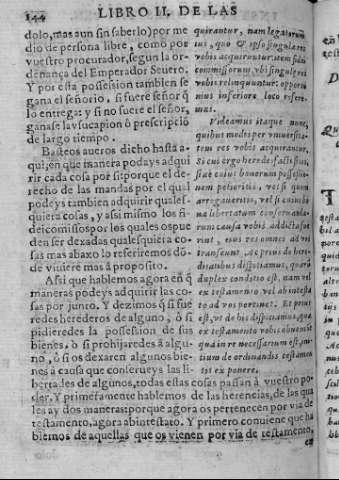 144 LIBRO II. DE LAS
dolo, mas aun sin saberlo) por me
dio de persona libre, como por
vuestro procurador, segun la or-
denança del Emperador Seuero.
Y por esta possession tambien se
gana el señorio, si fuere señor q̃
lo entrega: y si no fuere el señor,
ganase la vsucapion ò prescripciõ
de largo tiempo.
Basteos aueros dicho hasta a-
qui, en que manera podays adqui
rir cada cosa por si: porque el de-
recho de las mandas por el qual
podeys tambien adquirir quales-
quiera cosas, y assi mismo los fi-
deicomissos por los quales ospue
den ser dexadas qualesquiera co-
sas mas abaxo lo referiremos dõ-
de viniere mas à proposito.
Assi que hablemos agora en q̃
maneras podeys adquirir las co-
sas por junto. Y dezimos q̃ si fue
redes herederos de alguno, ò si
pidieredes la possession de sus
bienes, ò si prohijaredes à algu-
nò, ò si os dexaren algunos bie-
nes à causa que conserueys las li-
bertades de algunos, todas estas cosas passan à vuestro po-
der. Y primeramente hablemos de las herencias, de las qua
les ay dos maneras: porque agora os pertenecen por via de
testamento, agora abintestato. Y primero conuiene que ha
blemos de aquellas que os vienen por via de testamento,
quirantur, nam legatorum
ius, quo & ipso singulas res
vobis acquirantur, item fidei
commissorum, vbi singulæ res
vobis relinquuntur: opportu-
nius inferiore loco refere-
mus.
Videamus itaque nunc,
quibus modis per vniuersita-
tem res vobis acquirantur.
Si cui ergo heredes facti sitis,
siue cuius bonorum possessio-
nem petieritis, vel si quem
arrogaueritis, vel si cuius bo-
na libertatum conseruanda-
rum causa vobis addicta fue-
rint, eius res omnes ad vos
transeunt. Ac prius de here-
ditatibus dispiciamus, quarũ
duplex conditio est, nam vel
ex testamento vel ab intesta
to ad vos pertinet. Et prius
est, vt de his dispiciamus, quæ
ex testamento vobis obueniũt
qua in re necessarium est, ini-
tium de ordinandis testamen
tis exponere.